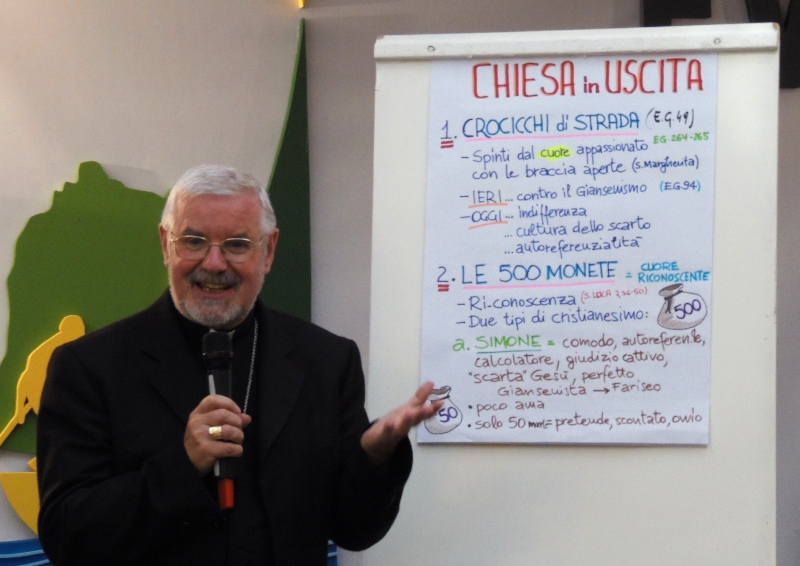 CHIESA in USCITA
1. CROCICCHI di STRADA (E.G. 49)
E.G. 264-265
- Spinti dal cuore appassionato
con le braccia aperte (S. Margherita)
- IERI... contro il Giansenismo (E.G. 94)
- OGGI... indifferenza
... cultura dello scarto
... autoreferenzialità
2. LE 500 MONETE = CUORE RICONOSCENTE
- Ri-conoscenza (S. LUCA 7,36-50)
- Due tipi di cristianesimo:
500
a. SIMONE = comodo, autoreferen.le,
calcolatore, giudizio cattivo,
"scarta" Gesù, perfetto
Giansenista → Fariseo
• poco ama
50
• solo 50 pretende, scontato, ovvio